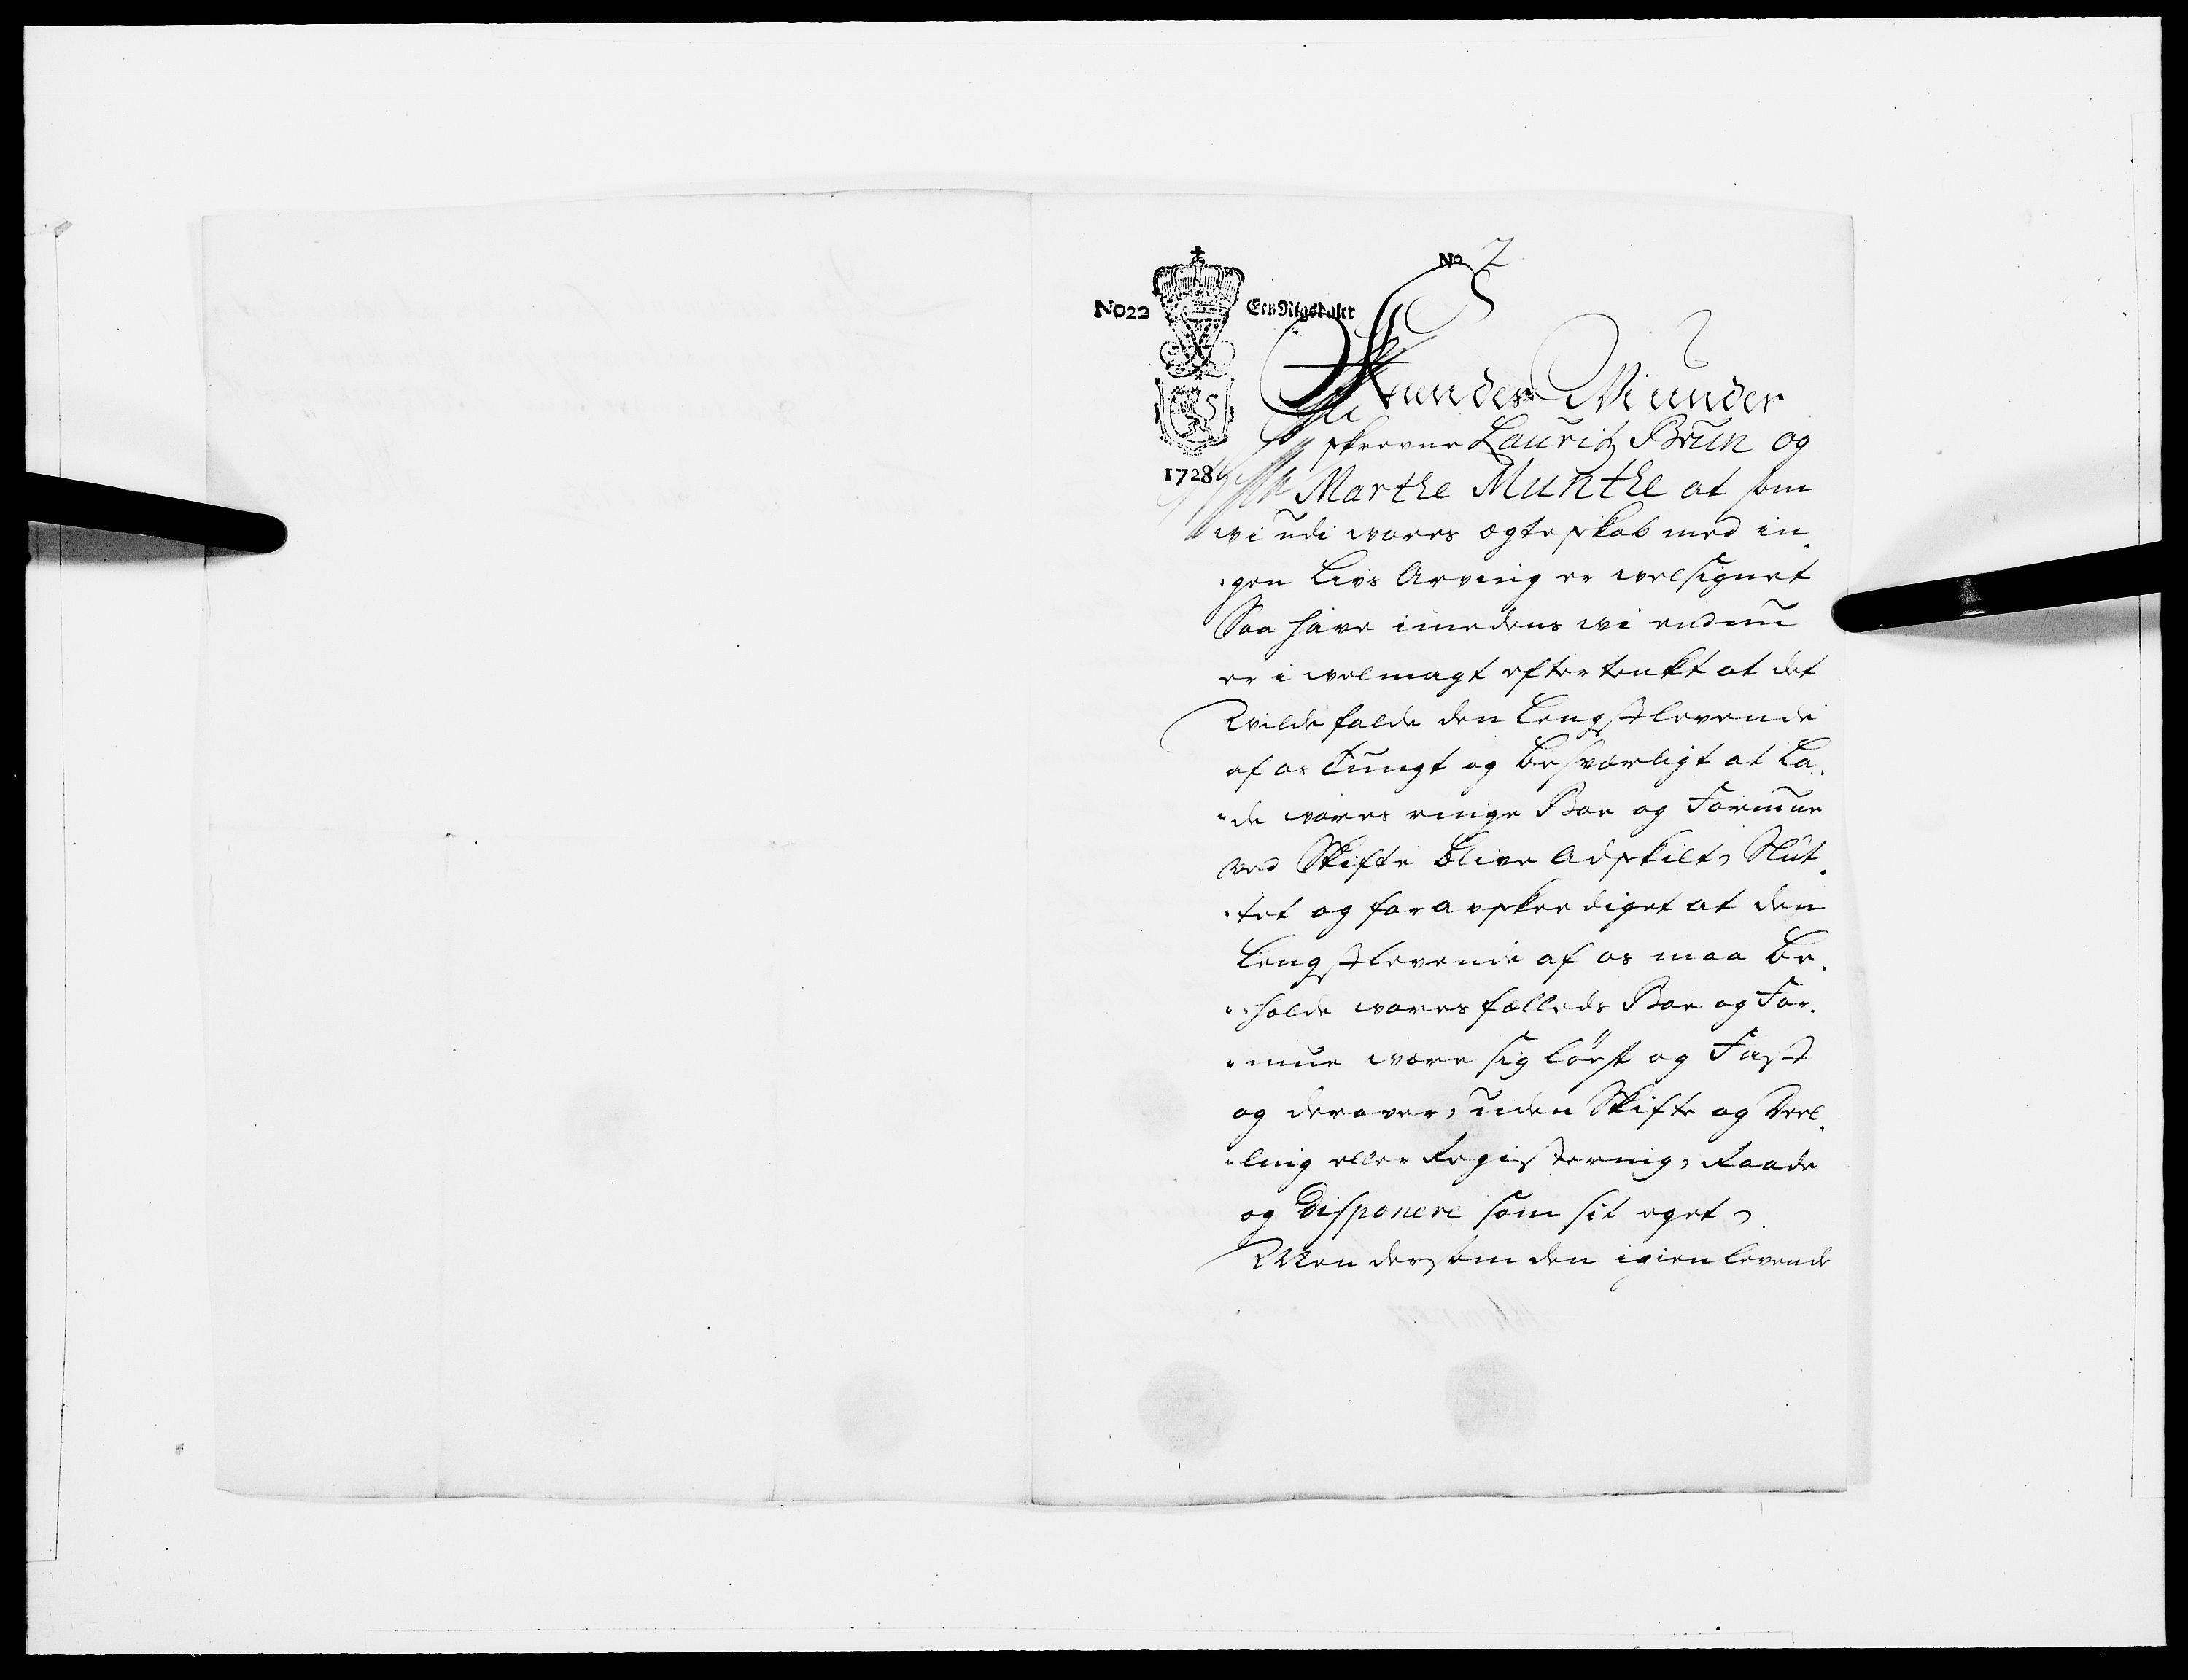 No 7
No22
Een Rigsdaler
1728
Kunder Vi under
skrevne Lauritz Brun og
Marthe Munthe at som
wi udi wores ægteskab med in
gen Livs Arving er welsignet
Saa have imedens wi endnu
er i welmagt eftertenkt at det
Wilde falde den Lengstlevende
af os Tungt og besværligt at La
de wores ringe Boe og Formue
ved Skifte blive Adskilt, Slut
tet og foraarskediget at den
Lengstlevende af os maa be
holde wores fælleds Boe og For
mue være sig löest og Fast
og derover, uden Skifte og Deel
ling eller Registering, Raade
og Disponere som sit eget,
Men dersom den igienlevende